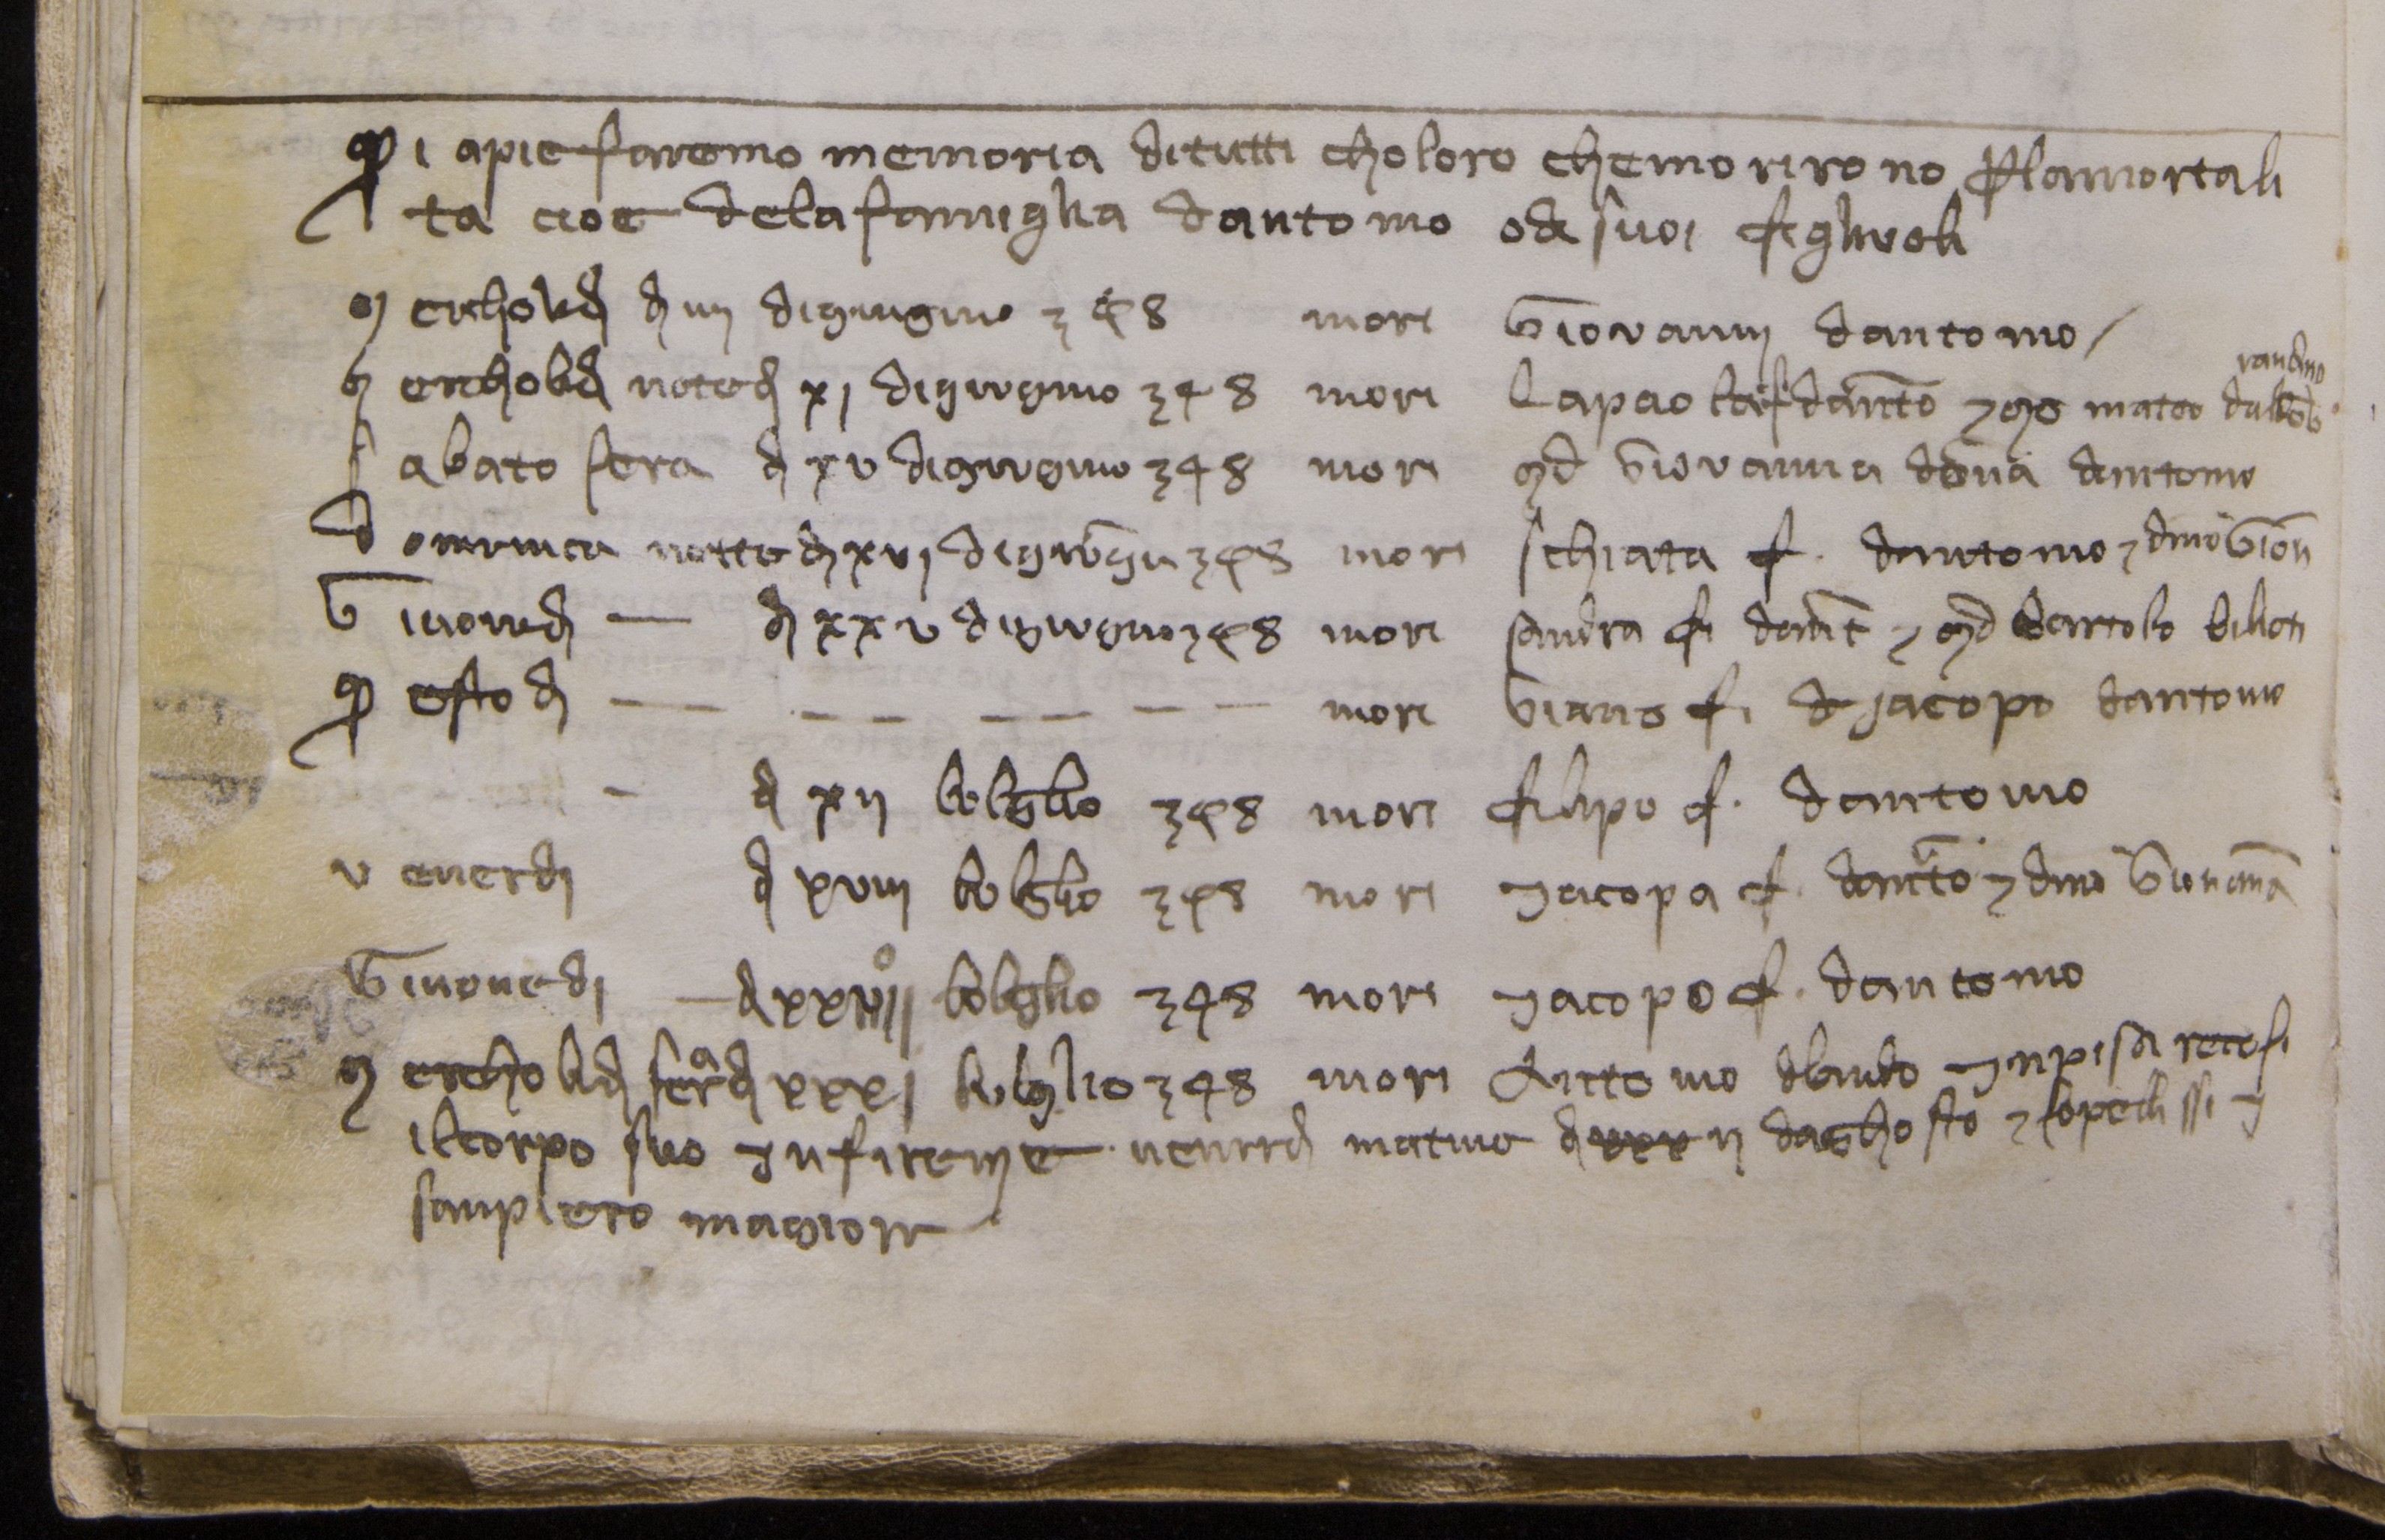 Qi apie faremo memoria di tutti choloro che morirono p la mortali
ta cioe dela famiglia dantonio o de suoi figliuoli
Mercholedi di iiij di giugnio 348 mori Giovanni dantonio /
Mercholedi note di xj di giugnio 348 mori Lapac mateo
Sabato sera di xv di giugnio 348 mori Md Giovanna dona dantonio
Domenica notte di xvj di giugn 348 mori Schiata f. dantonio Giov
Giuovedi — di xxv di giugno 348 mori sandra fi dant Md bartolo bilioti
Questo di — — — — — — — mori Giano fi di Jacopo dantonio
- di xij luglio 348 mori filipo f. dantonio
venerdi di xviij luglio 348 mori Jacopa f. danto Giovana
Giuovedi — di luglio 348 mori Jacopo f. dantonio
Mercholedi sera di xxxj luglio 348 mori Antonio dlando Jn pisa recosi
il corpo suo Jn firenze venerdi matina di ij daghosto sopellissi J
san piero magiore